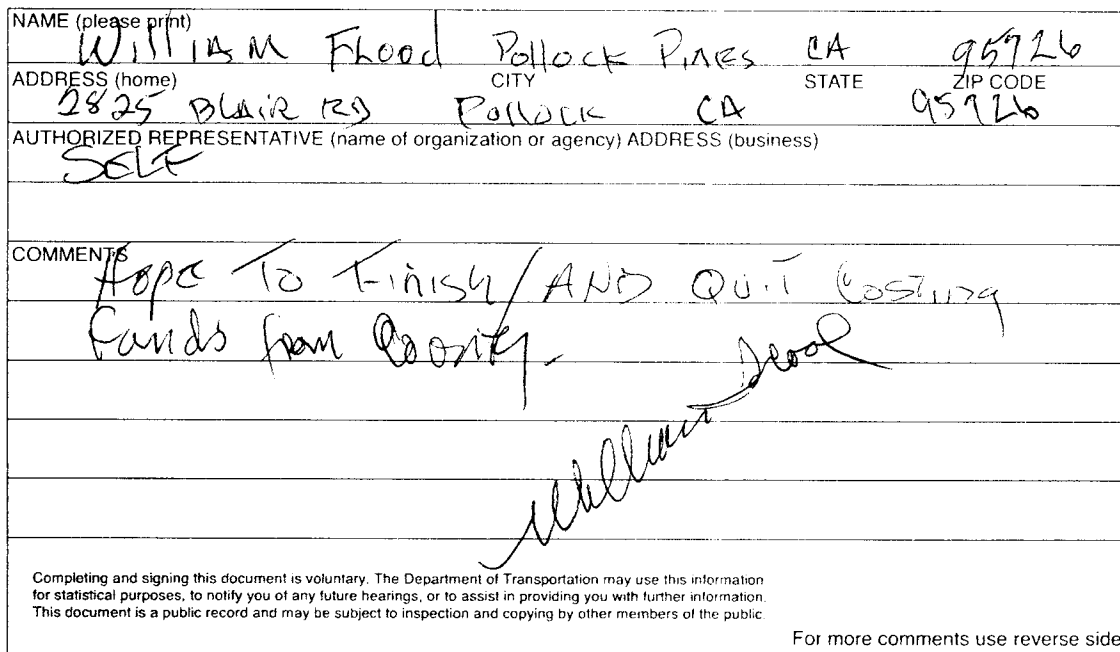 NAME (please print)
WilliAM Flood Pollock Pines CA 95726
ADDRESS (home) CITY STATE ZIP CODE
2825 Blair RD Pollock CA 95726
AUTHORIZED REPRESENTATIVE (name of organization or agency) ADDRESS (business)
SELF
COMMENTS
Hope To Finish / AND QuiT Costing
Funds from County.
William Flood
Completing and signing this document is voluntary. The Department of Transportation may use this information
for statistical purposes, to notify you of any future hearings, or to assist in providing you with further information.
This document is a public record and may be subject to inspection and copying by other members of the public.
For more comments use reverse side